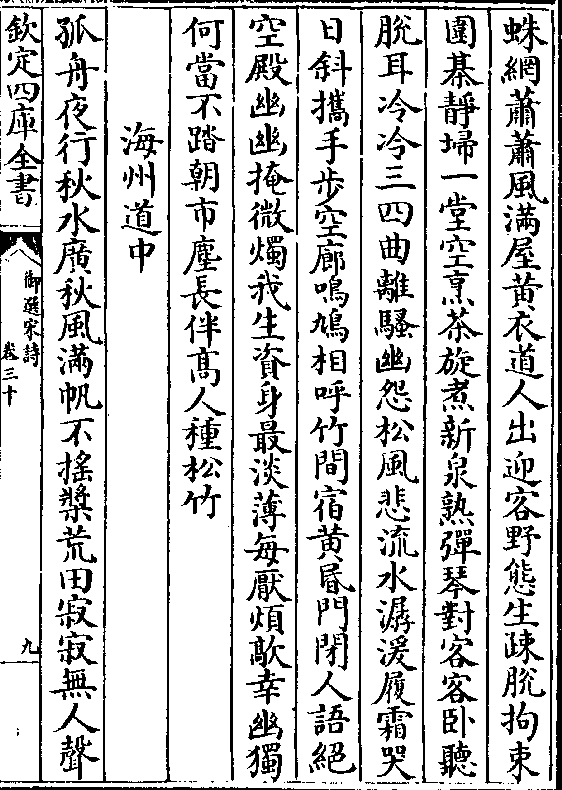 蛛網蕭蕭風滿屋黃衣道人出迎客野態生疎脫拘束
圍棊靜埽一堂空烹茶旋煮新泉熟彈琴對客客卧聽
脫耳冷冷三四曲離騷幽怨松風悲流水潺湲履霜哭
日斜攜手步空廊鳴鳩相呼竹間宿黃昬門閉人語絕
空殿幽幽掩微燭我生資身最淡薄每厭煩歊幸幽獨
何當不踏朝市塵長伴髙人種松竹
海州道中
孤舟夜行秋水廣秋風滿帆不搖槳荒田寂寂無人聲
欽定四庫全書
御選宋詩
卷三十
九